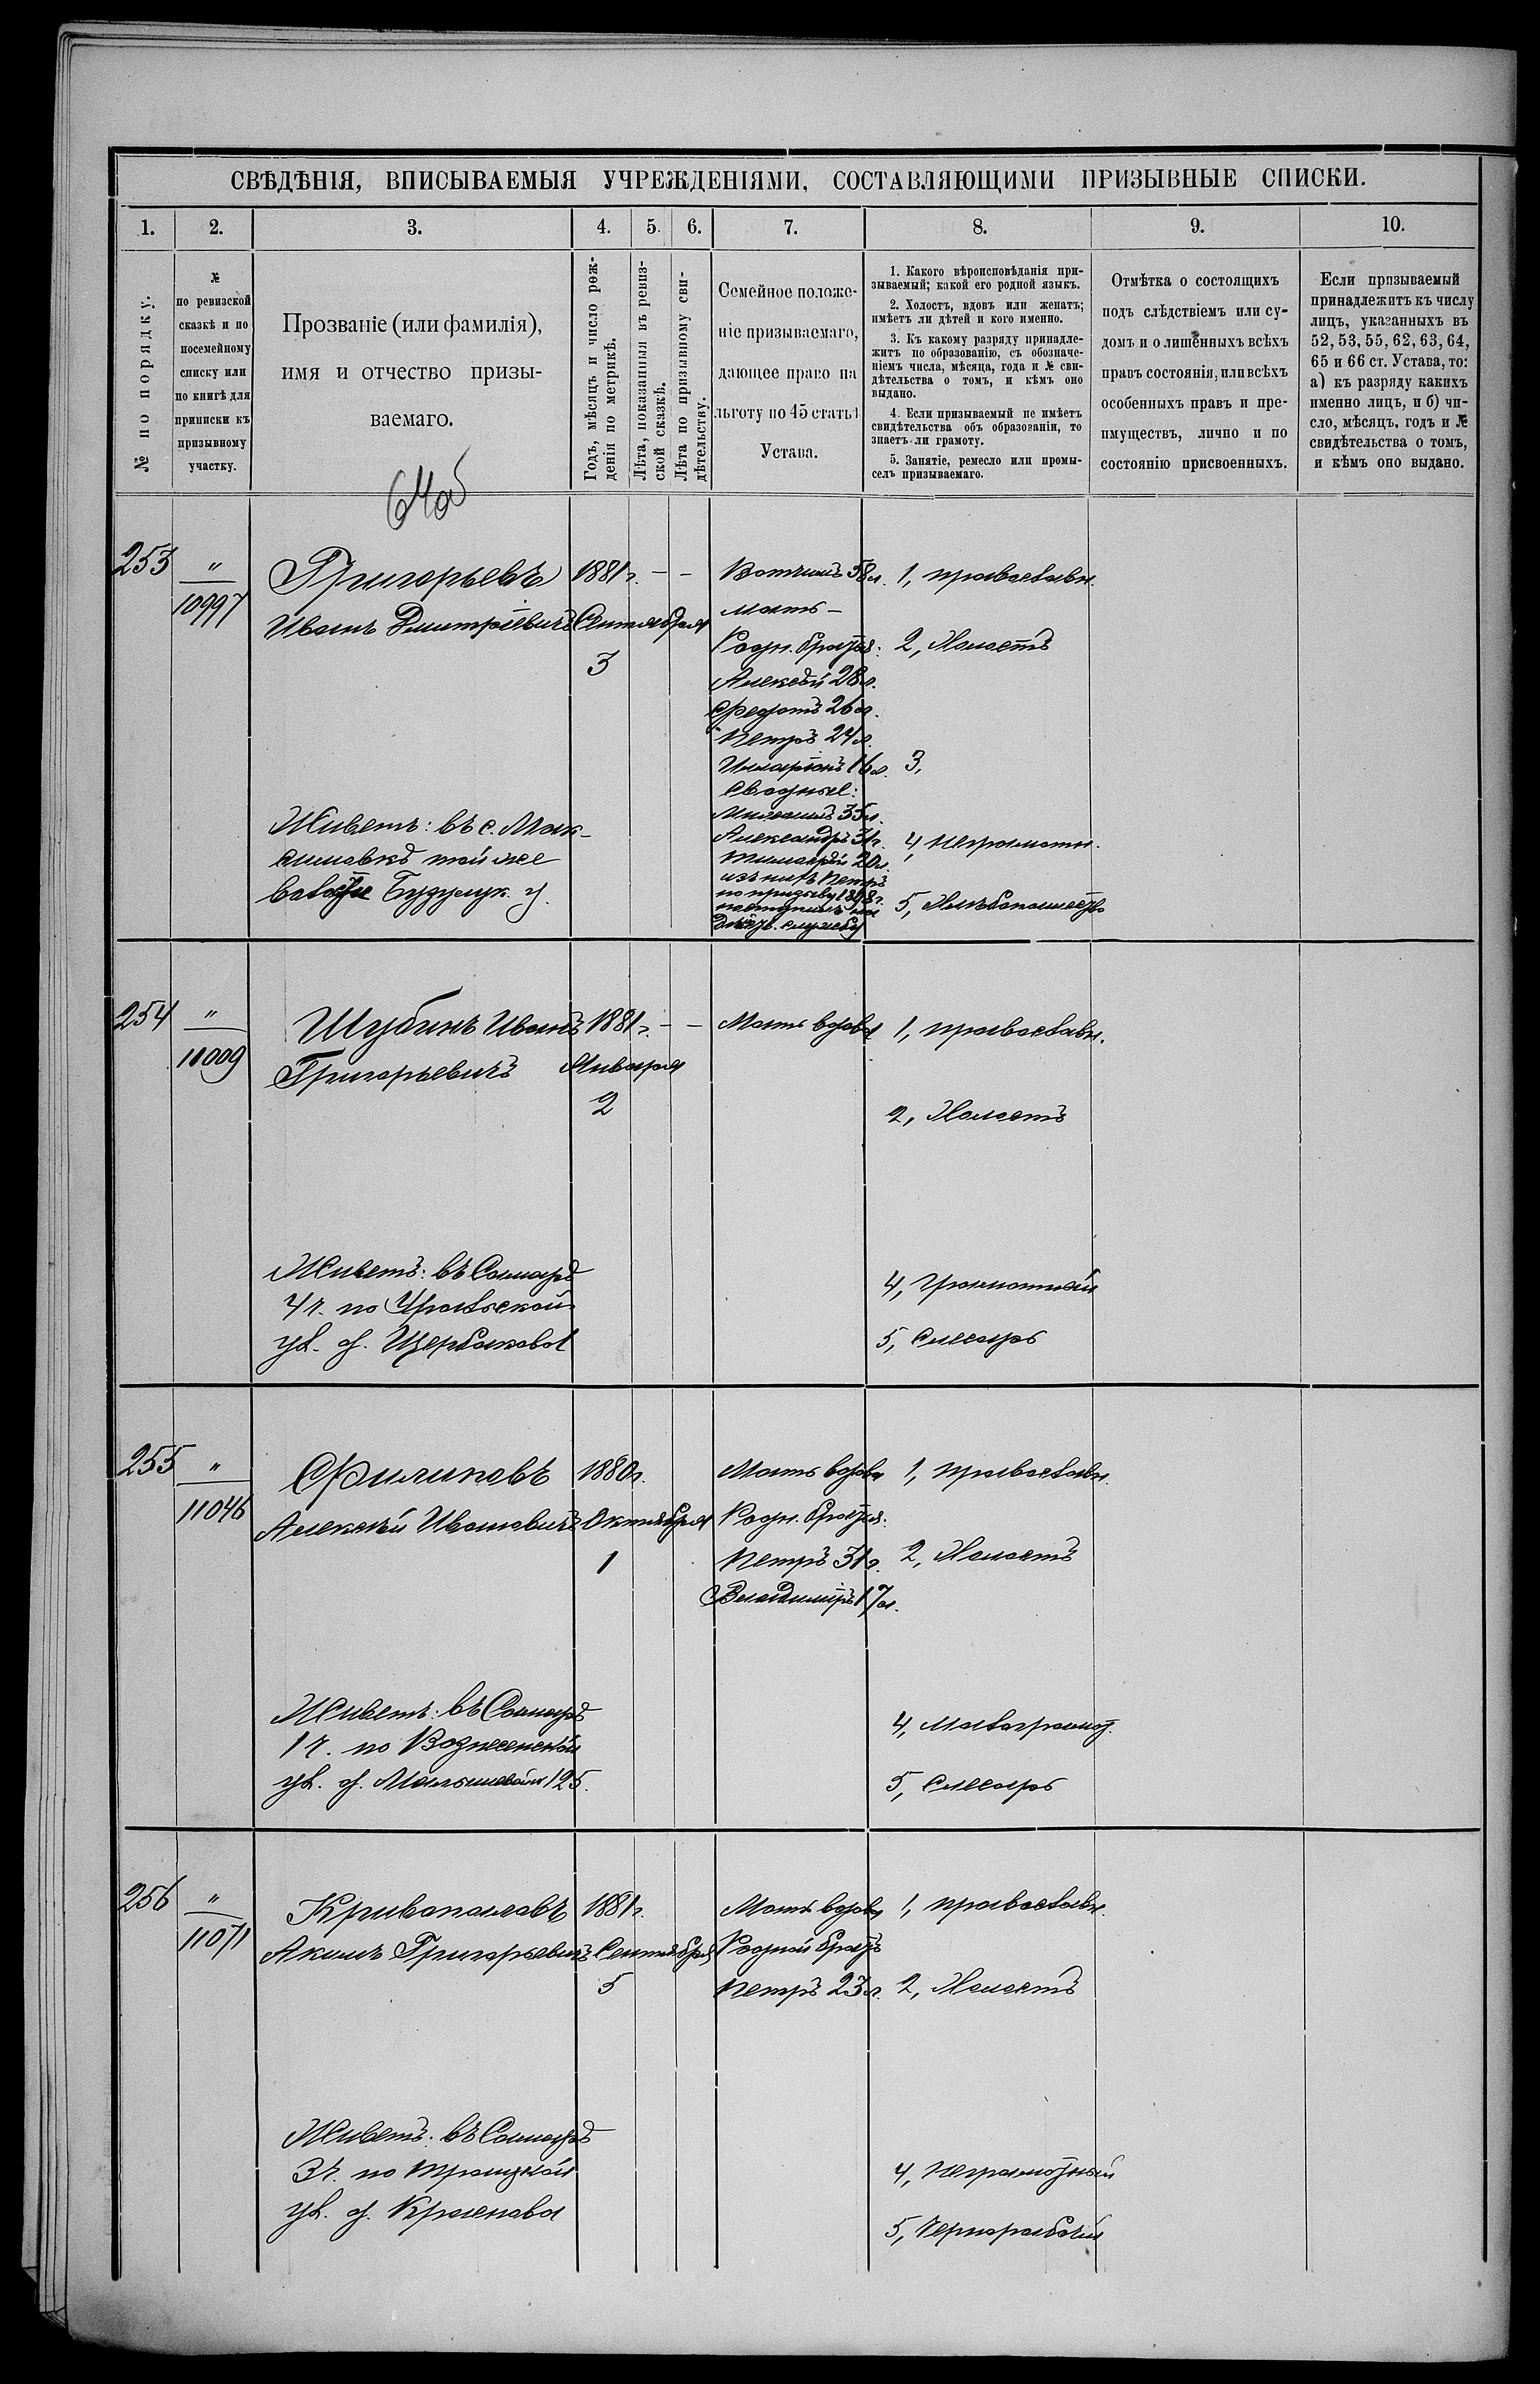 СВѢДѢНІЯ, ВПИСЫВАЕМЫЯ УЧРЕЖДЕНІЯМИ, СОСТАВЛЯЮЩИМИ ПРИЗЫВНЫЕ СПИСКИ.
1. 2. 3. 4. 5. 6. 7. 8. 9. 10.
№ по порядку.
№
по ревизской
сказкѣ и по
посемейному
списку или
по книгѣ для
приписки къ
призывному
участку.
Прозваніе (или фамилія),
имя и отчество призы-
ваемаго.
Годъ, мѣсяцъ и число рож-
денія по метрикѣ.
Лѣта, показанныя въ ревиз-
ской сказкѣ.
Лѣта по призывному сви-
дѣтельству.
Семейное положе-
ніе призываемаго,
дающее право на
льготу по 45 статьѣ
Устава.
1. Какого вѣроисповѣданія при-
зываемый; какой его родной языкъ.
2. Холостъ, вдовъ или женатъ;
имѣетъ ли дѣтей и кого именно.
3. Къ какому разряду принадле-
житъ по образованію, съ обозначе-
ніемъ числа, мѣсяца, года и № сви-
дѣтельства о томъ, и кѣмъ оно
выдано.
4. Если призываемый не имѣетъ
свидѣтельства объ образованіи, то
знаетъ ли грамоту.
5. Занятіе, ремесло или промы-
селъ призываемаго.
Отмѣтка о состоящихъ
подъ слѣдствіемъ или су-
домъ и о лишенныхъ всѣхъ
правъ состоянія, или всѣхъ
особенныхъ правъ и пре-
имуществъ, лично и по
состоянію присвоенныхъ.
Если призываемый
принадлежитъ къ числу
лицъ, указанныхъ въ
52, 53, 55, 62, 63, 64,
65 и 66 ст. Устава, то:
а) къ разряду какихъ
именно лицъ, и б) чи-
сло, мѣсяцъ, годъ и №
свидѣтельства о томъ,
и кѣмъ оно выдано.
64об
253 " 10997
Григорьевъ
Иванъ Дмитріевичъ
1881 г. - -
Сентября
3
Вотчимъ 58 л.
мать -
Родн. братья:
Алексѣй 28 л.
Федотъ 26 л.
Петръ 24 л.
Иларіонъ 16 л.
Сводные:
Михаилъ 35 л.
Александръ 31 г.
Тимофей 20 л.
изъ нихъ Петръ
по призыву 1898 г.
поступилъ на
дѣйств. службу
1, православн.
2, Холостъ
3,
4, Неграмотн.
5, Хлѣбопашество
Живетъ: въ с. Мак-
симовкѣ той же
волости Бузулук. у.
254 " 11009
Шубинъ Иванъ
Григорьевичъ
1881 г. - -
Января
2
Мать вдова
1, православн.
2, Холостъ
4, Грамотный
5, Слесарь
Живетъ: въ Самарѣ
4 ч. по Уральской
ул. д. Щербакова
255 " 11046
Филиповъ
Алексѣй Ивановичъ
1880 г.
Октября
1
Мать вдова
Родн. братья:
Петръ 31 г.
Владиміръ 17 л.
1, православн.
2, Холостъ
4, Малограмот.
5, Слесарь
Живетъ: въ Самарѣ
1 ч. по Вознесенской
ул. д. 125.
256 " 11071
Кривопаловъ
Акимъ Григорьевичъ
1881 г.
Сентября
5
Мать вдова
Родной братъ
Петръ 23 л.
1, православн.
2, Холостъ
4, Неграмотный
5, Чернорабочій
Живетъ: въ Самарѣ
3 ч. по Троицкой
ул. д.